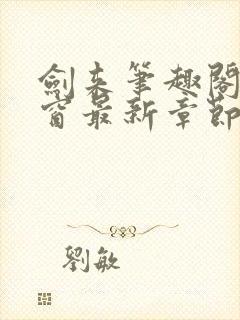 劍來筆趣閣
窗最新章節
劉敏